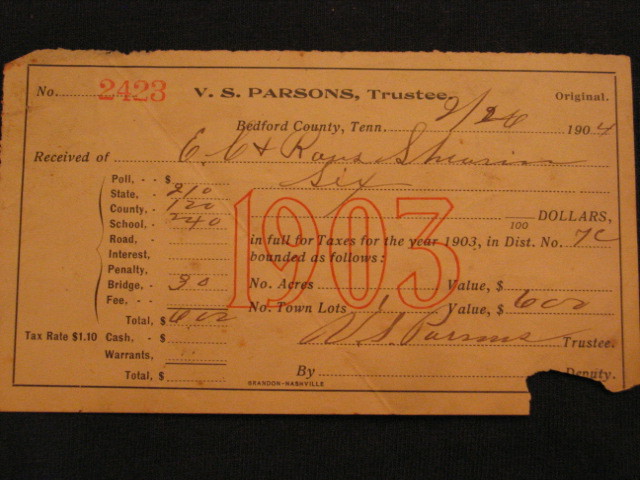 No. 2423 V. S. PARSONS, Trustee, Original.
Bedford County, Tenn. 2/26 1904
Received of E. C & Rosa Shearin
Six
Poll, - - $
State, - 210
County, - 120
School, - 240 100 DOLLARS,
Road, - in full for Taxes for the year 1903, in Dist. No. 7C
Interest, bounded as follows:
Penalty,
Bridge, - 30 No. Acres Value, $
Fee, - - No. Town Lots 1 Value, $ 600
Total, $ 600 V. S. Parsons Trustee.
Tax Rate $1.10 Cash, -
Warrants,
Total, $ By Deputy.
BRANDON-NASHVILLE
1903